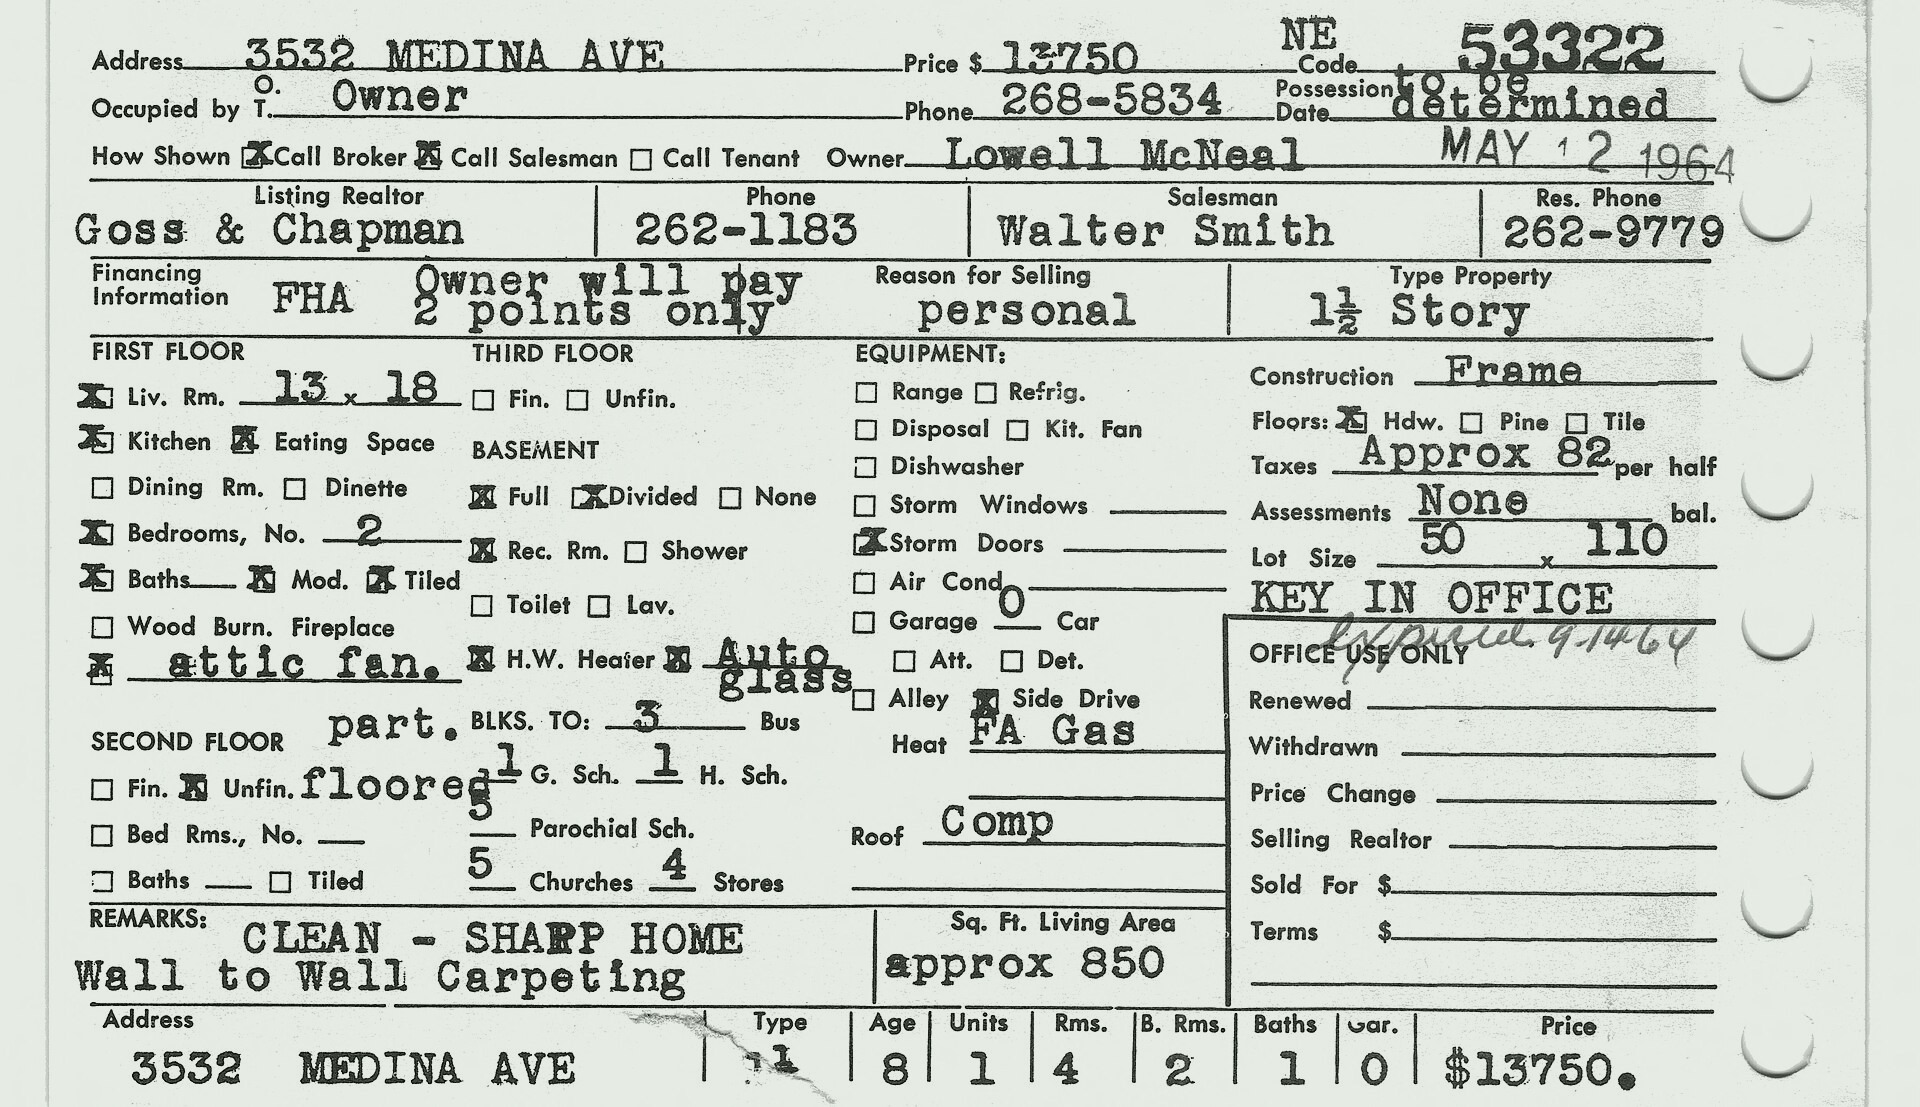 Address 3532 MEDINA AVE Price $ 13750 NE Code 53322
Occupied by O. T. Owner Phone 268-5834 Possession Date to be determined
How Shown ☒ Call Broker ☒ Call Salesman ☐ Call Tenant Owner Lowell McNeal MAY 12 1964
Listing Realtor Phone Salesman Res. Phone
Goss & Chapman 262-1183 Walter Smith 262-9779
Financing Information FHA Owner will pay 2 points only
Reason for Selling personal
Type Property 1½ Story
FIRST FLOOR
☒ Liv. Rm. 13 x 18
☒ Kitchen ☒ Eating Space
☐ Dining Rm. ☐ Dinette
☒ Bedrooms, No. 2
☒ Baths ☒ Mod. ☒ Tiled
☐ Wood Burn. Fireplace
☒ attic fan.
SECOND FLOOR part.
☐ Fin. ☒ Unfin. floored
☐ Bed Rms., No.
☐ Baths ☐ Tiled
THIRD FLOOR
☐ Fin. ☐ Unfin.
BASEMENT
☒ Full ☒ Divided ☐ None
☒ Rec. Rm. ☐ Shower
☐ Toilet ☐ Lav.
☒ H.W. Heater ☒ Auto
glass
BLKS. TO: 3 Bus
1 G. Sch. 1 H. Sch.
5 Parochial Sch.
5 Churches 4 Stores
EQUIPMENT:
☐ Range ☐ Refrig.
☐ Disposal ☐ Kit. Fan
☐ Dishwasher
☐ Storm Windows
☒ Storm Doors
☐ Air Cond.
☐ Garage 0 Car
☐ Att. ☐ Det.
☐ Alley ☒ Side Drive
Heat FA Gas
Roof Comp
Construction Frame
Floors: ☒ Hdw. ☐ Pine ☐ Tile
Taxes Approx 82 per half
Assessments None bal.
Lot Size 50 x 110
KEY IN OFFICE
expired 9-14-64
OFFICE USE ONLY
Renewed
Withdrawn
Price Change
Selling Realtor
Sold For $
Terms $
REMARKS: CLEAN - SHARP HOME
Wall to Wall Carpeting
Sq. Ft. Living Area
approx 850
Address Type Age Units Rms. B. Rms. Baths Gar. Price
3532 MEDINA AVE 8 1 4 2 1 0 $13750.